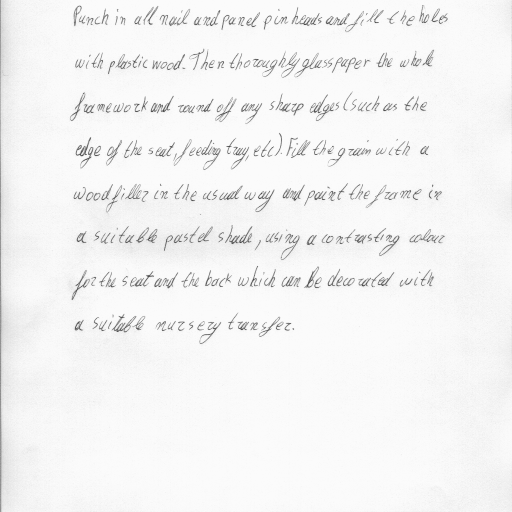 Punch in all nail and panel pin heads and fill the holes
with plastic wood. Then thoroughly glasspaper the whole
framework and round off any sharp edges (such as the
edge of the seat, feeding tray, etc). Fill the grain with a
wood filler in the usual way and paint the frame in
a suitable pastel shade, using a contrasting colour
for the seat and the back which can be decorated with
a suitable nursery transfer.